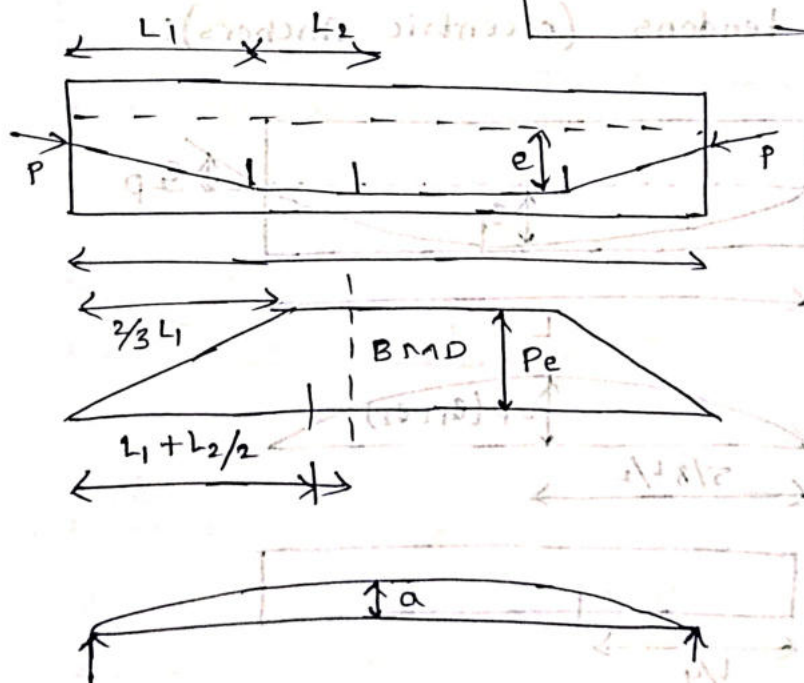 L1 L2
P e P
2/3 L1
BMD Pe
L1 + L2/2
a